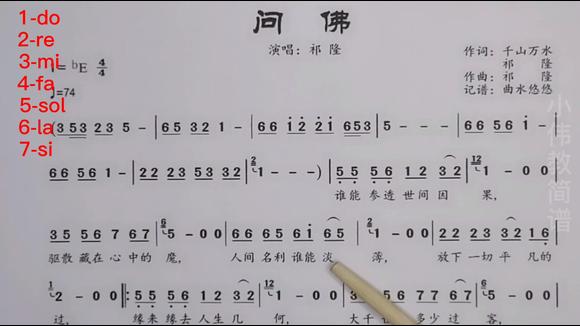 问佛
演唱：祁 隆
作词：千山万水
祁 隆
作曲：祁 隆
记谱：曲水悠悠
1-do
2-re
3-mi
4-fa
5-sol
6-la
7-si
♭E 4/4
♩=74
(3 5 3 2 3 5 - | 6 5 3 2 1 - | 6 6 1 2 2 1 6 5 3 | 5 - - | 6 6 5 3 2 3
6 6 1 - | 2 2 2 3 5 3 2 | 1 - - ) | 5 5 5 6 1 2 3 2 | 1 - 0 0 |
谁能参透世间因 果，
3 5 5 6 7 6 7 | 5 - 0 0 | 6 6 6 5 6 1 6 5 | 1 - 0 0 | 2 2 2 3 3 2 1 6 |
驱散藏在心中的 魔， 人间名利谁能淡 薄， 放下一切平 凡的
2 - 0 0 |: 5 5 5 6 1 2 3 2 | 1 - 0 0
过， 缘来缘去人生几 何， 大千 多少过 客，
小伟教简谱